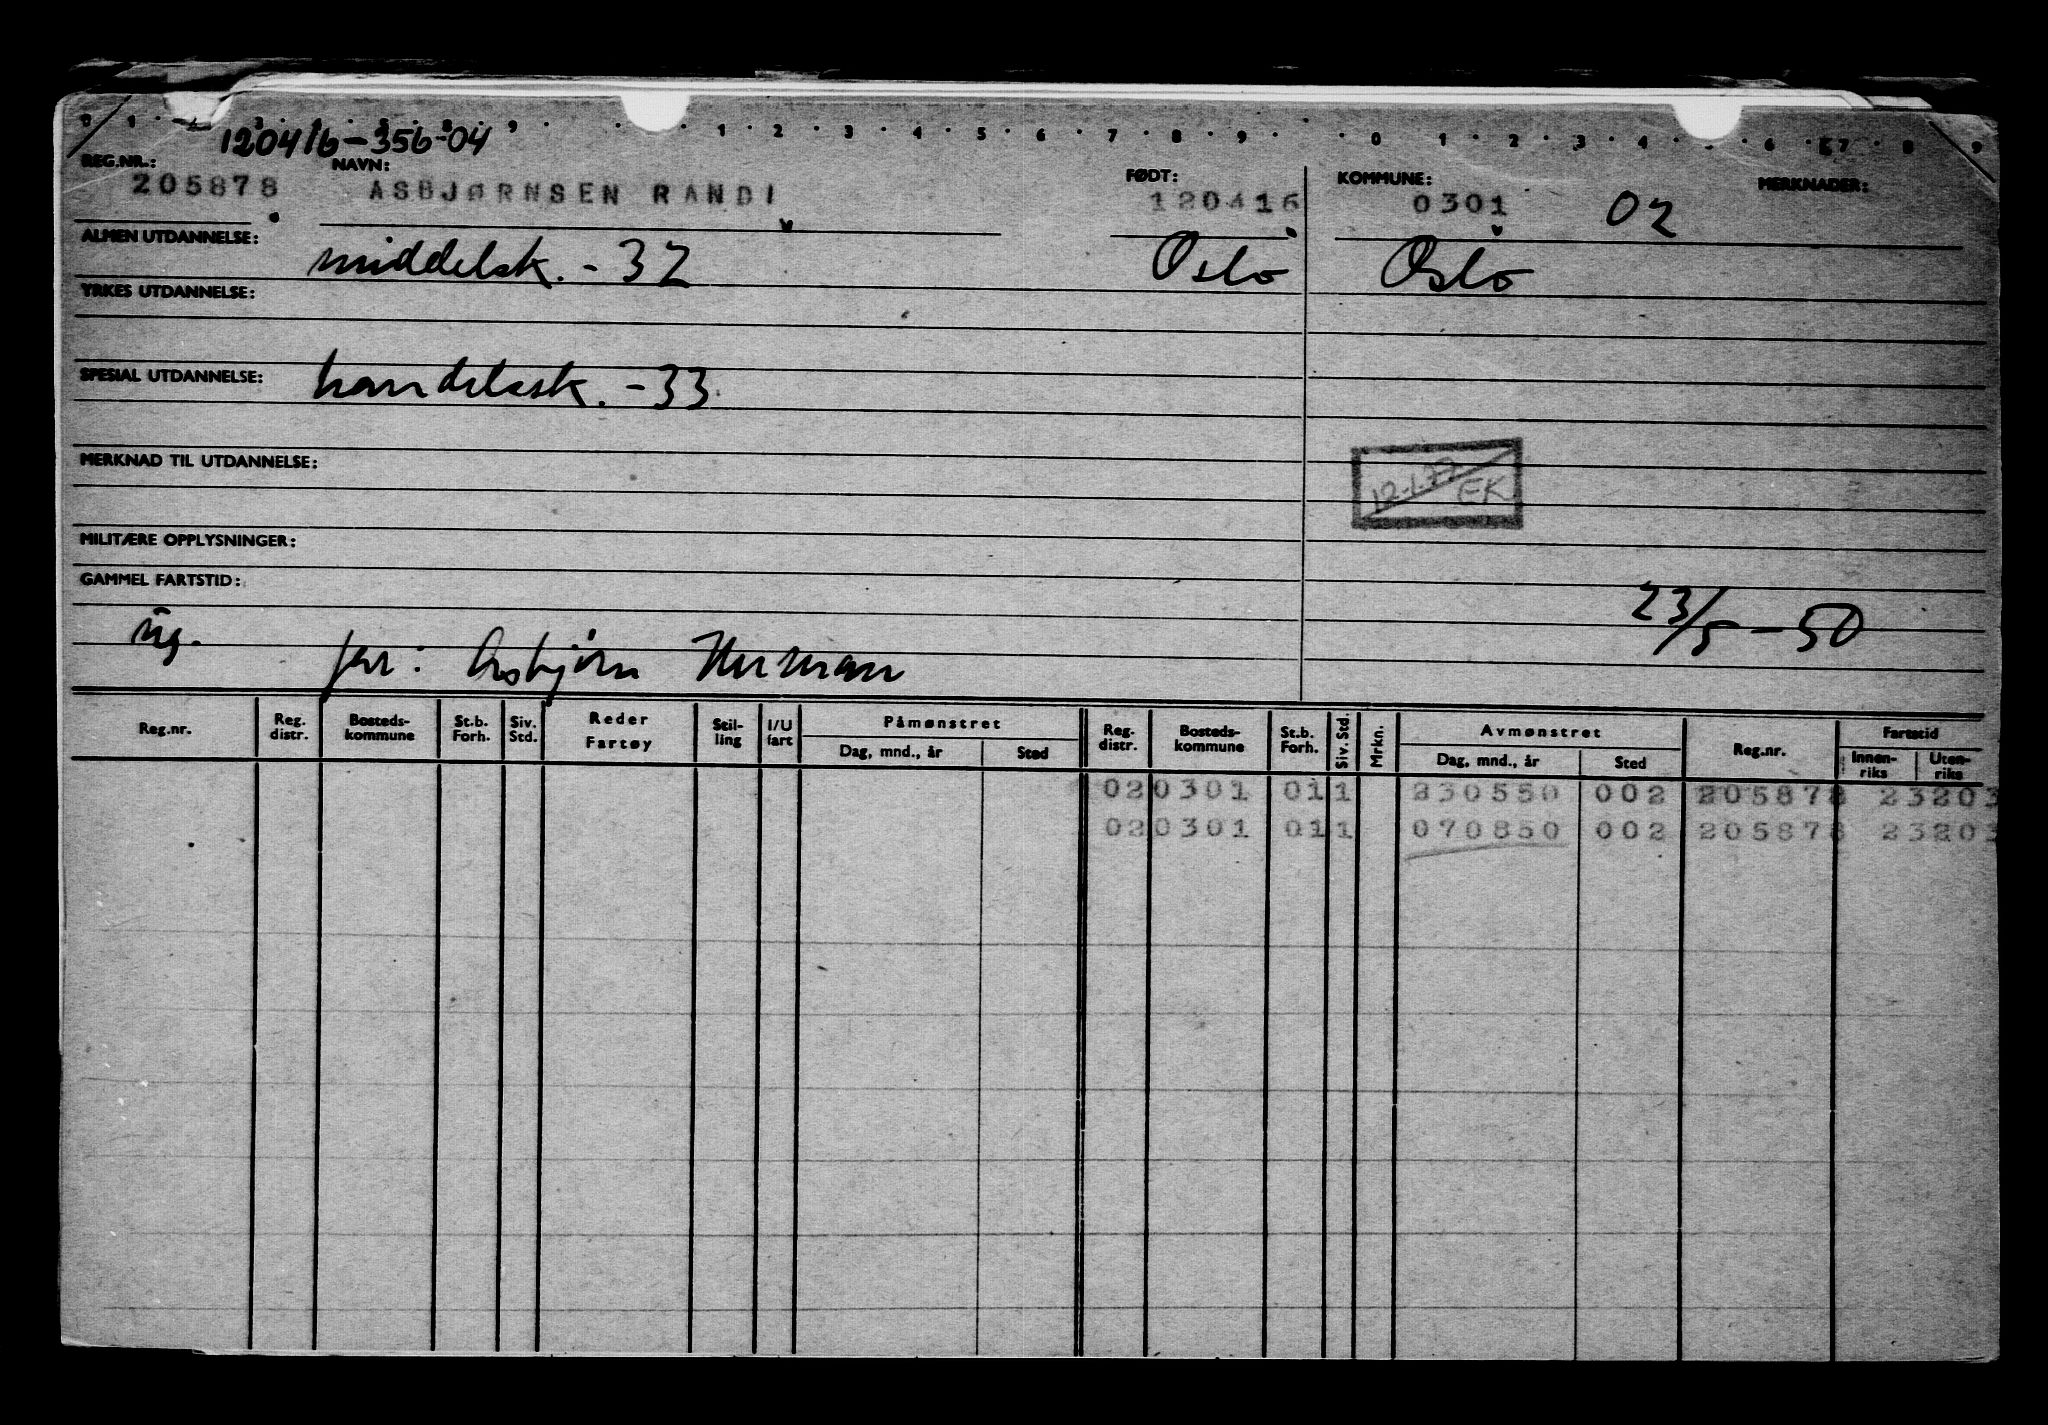 120416-356-04
REG.NR.: NAVN: FØDT: KOMMUNE: MERKNADER:
205878 ASBJØRNSEN RANDI 120416 0301 02
ALMEN UTDANNELSE: middelsk. - 32 Oslo Oslo
YRKES UTDANNELSE:
SPESIAL UTDANNELSE: handelssk. - 33
MERKNAD TIL UTDANNELSE:
12-1-77 EK
MILITÆRE OPPLYSNINGER:
GAMMEL FARTSTID:
23/5-50
ug. far: Asbjørn Herman
Reg.nr. Reg. distr. Bosteds-kommune St.b. Forh. Siv. Std. Reder Fartøy Stil-ling I/U fart Påmønstret Dag, mnd., år Sted Reg. distr. Bosteds-kommune St.b. Forh. Siv. Std. Mrkn. Avmønstret Dag, mnd., år Sted Reg.nr. Fartstid Innen-riks Uten-riks
02 0301 01 1 230550 002 205878 23203
02 0301 01 1 070850 002 205878 23203